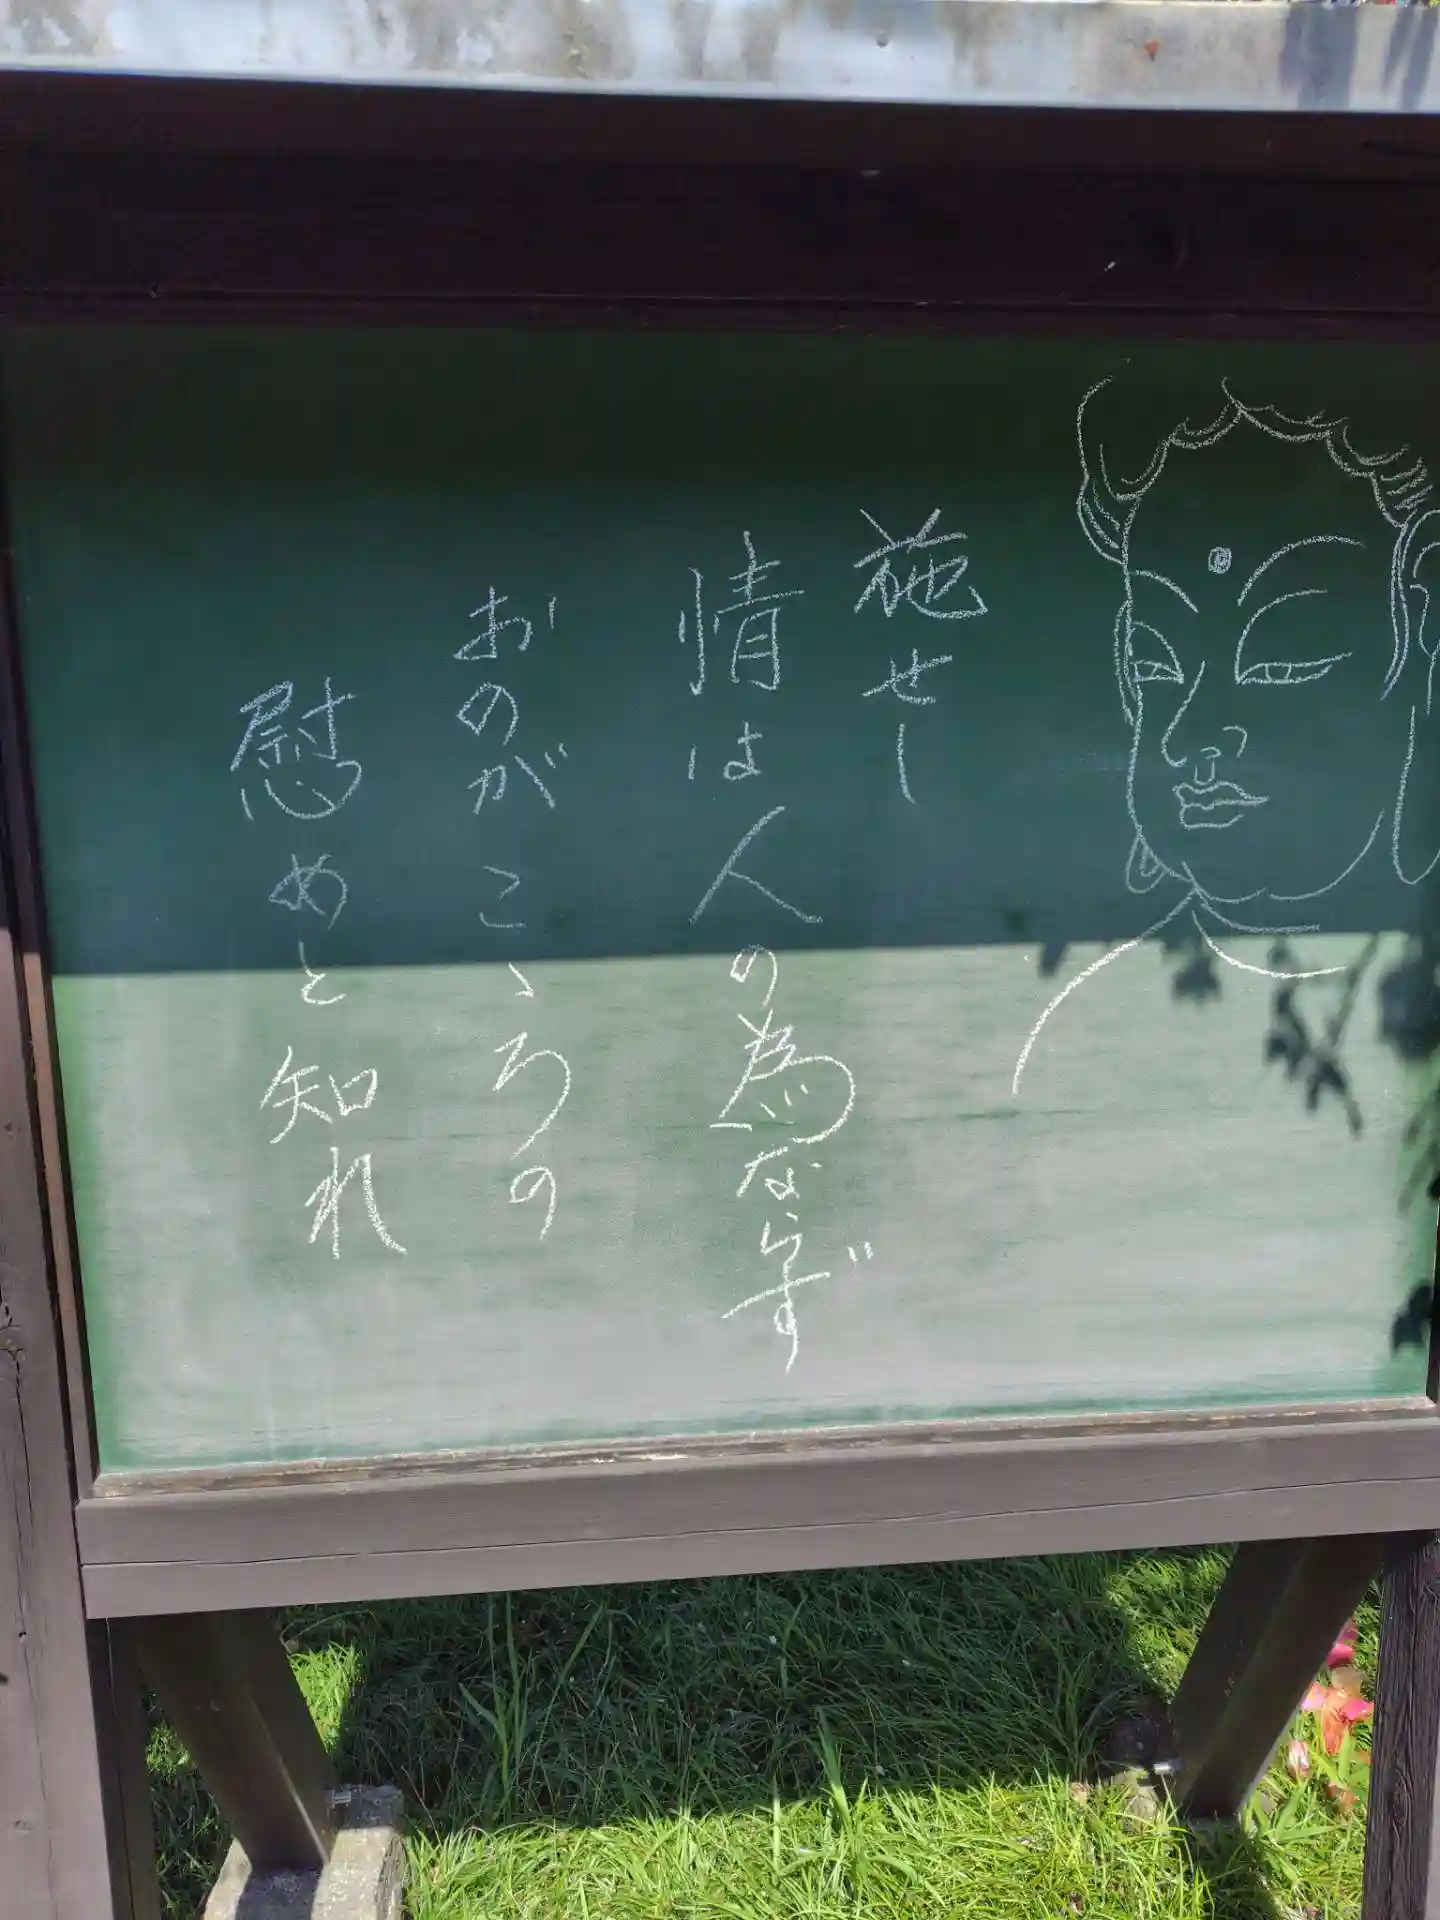 施せし
情は人の為ならず
おのがこゝろの
慰めと知れ